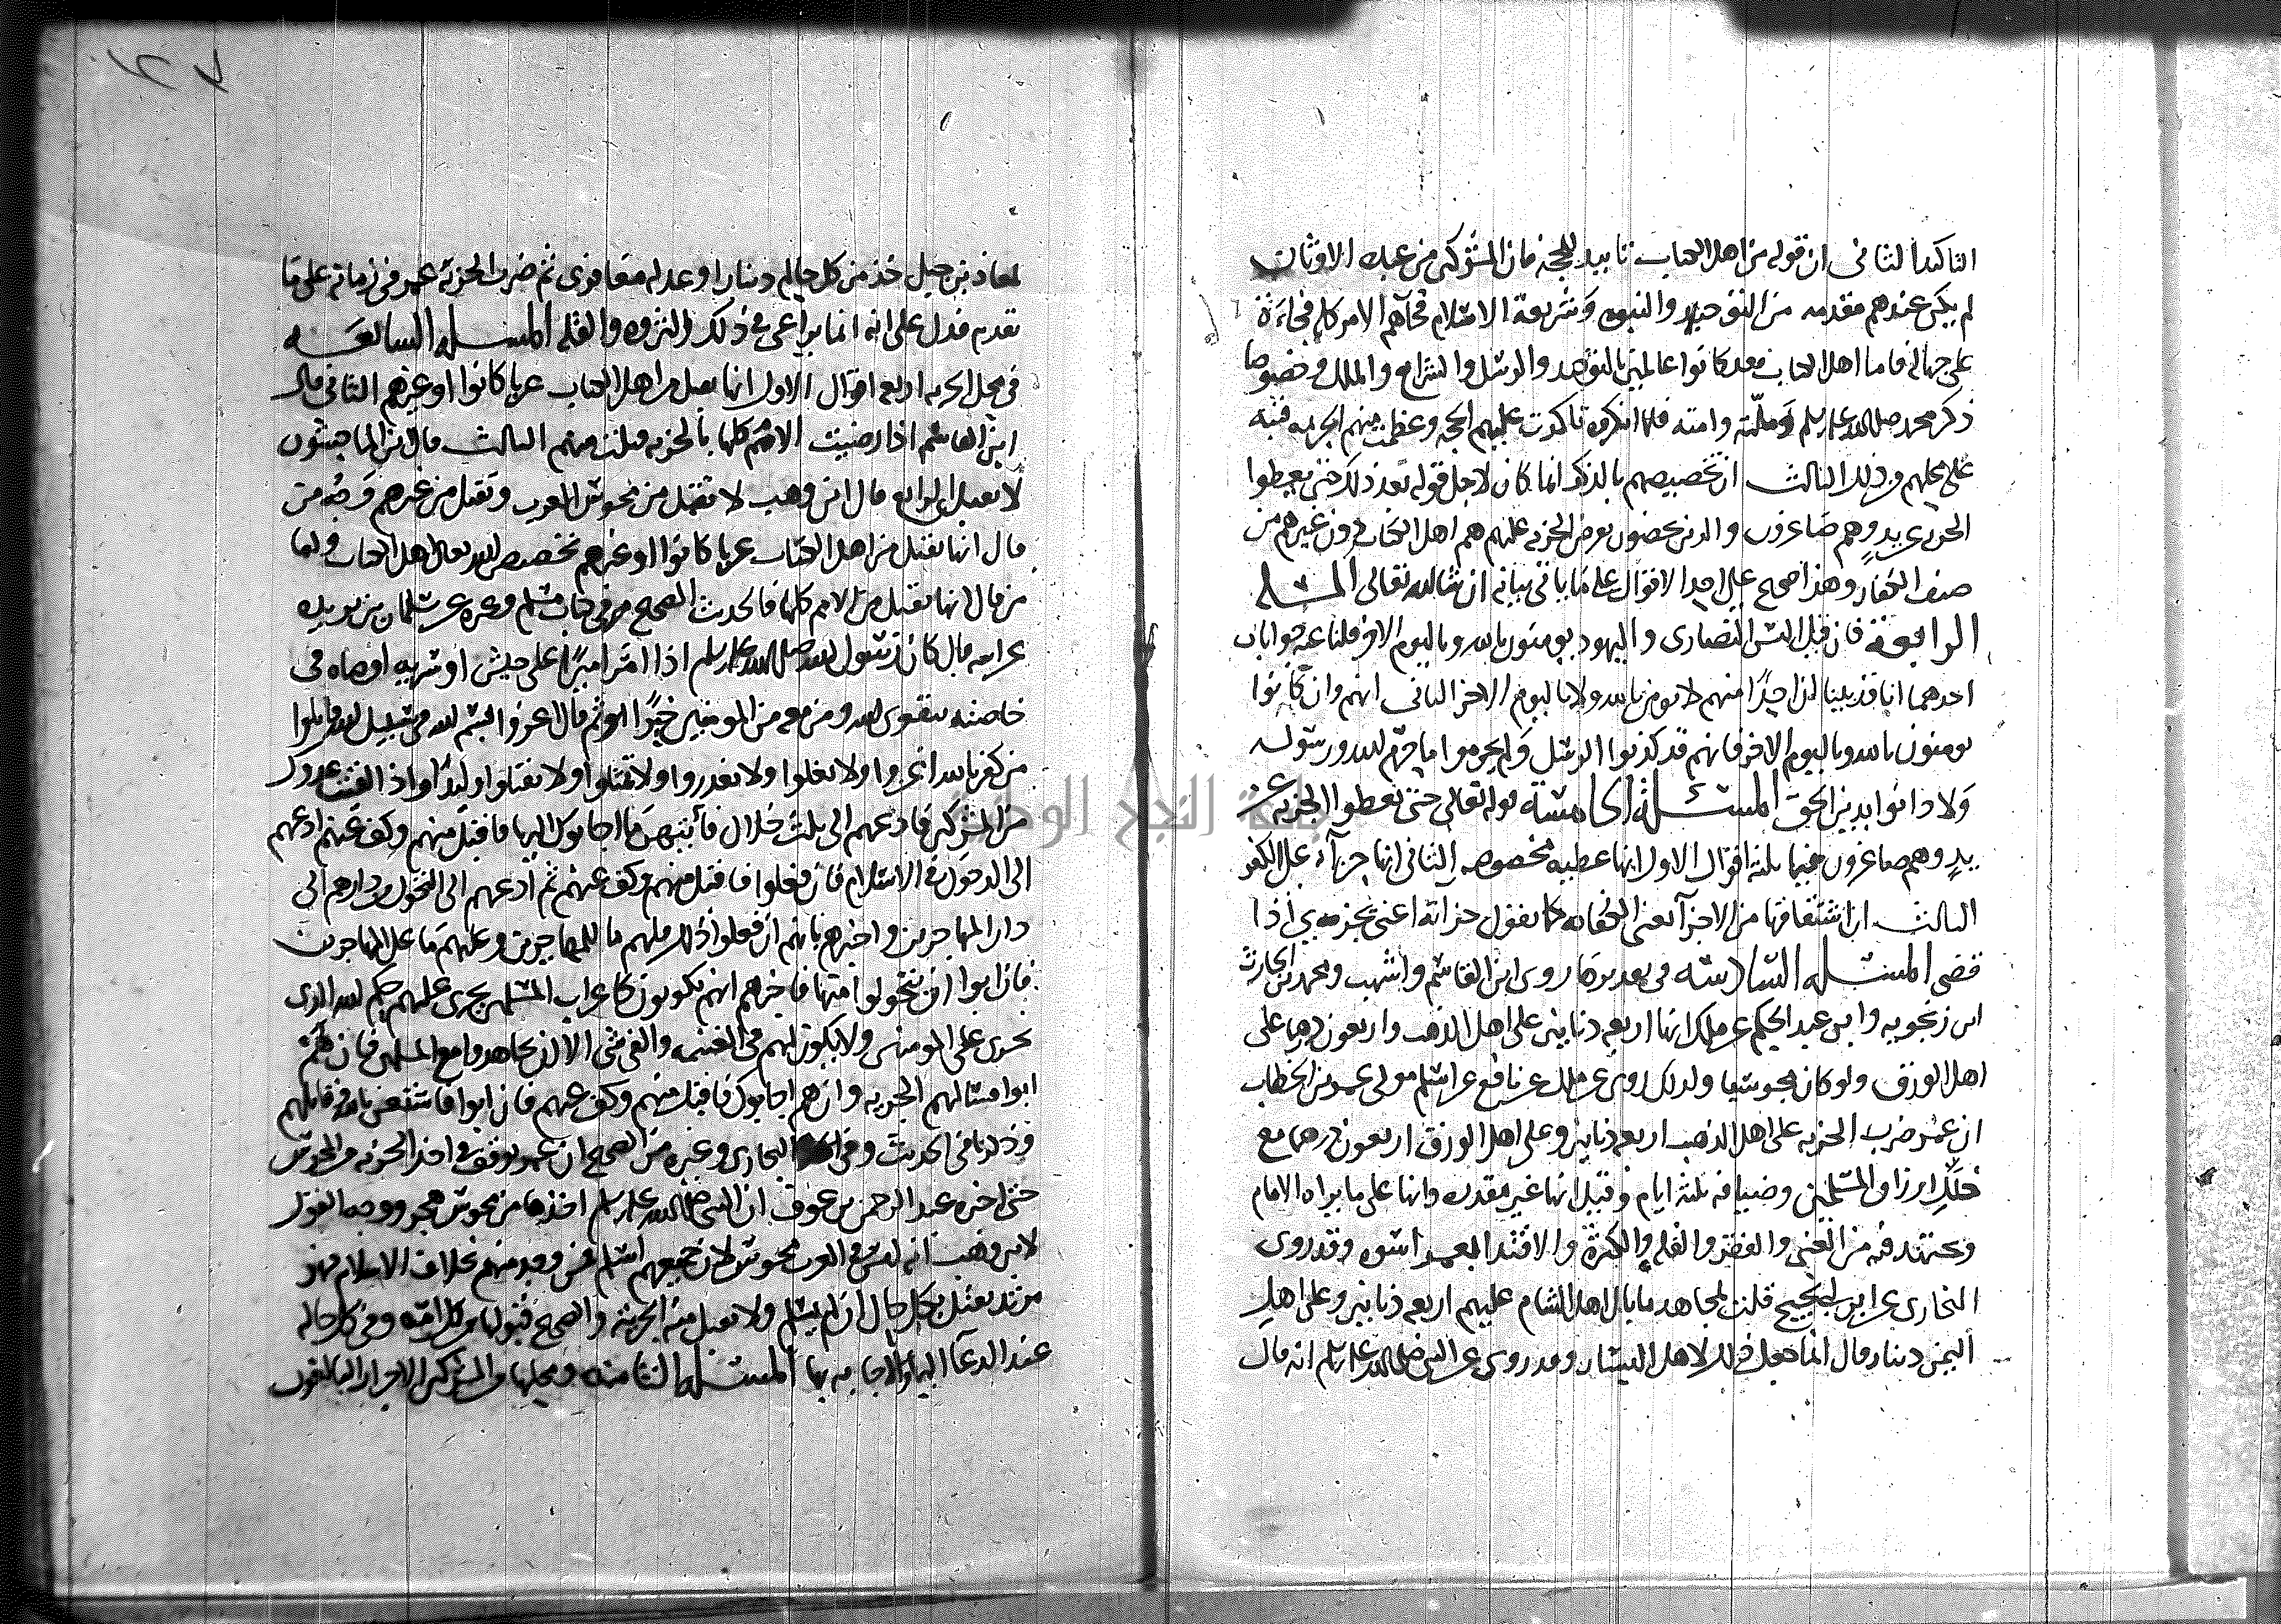 التاكيد الثانى ان قوله من اهل الكتاب تابيد للحجة فان المشركين من عبدة الاوثان
لم يكن عندهم مقدمه من التوحيد والنبوه وشريعة الاسلام فجآهم الامر كله فجاءة
على جهالة فاما اهل الكتاب فقد كانوا عالمين بالتوحيد والرسل والشرايع والملل وخصوصا
ذكر محمد صلى الله عليه وسلم وملّته وامته فلما انكروه تاكدت عليهم الحجه وعظمت منهم الجريمه فنبه
على محلهم وذلك الثالث ان تخصيصهم بالذكر انما كان لاجل قوله بعد ذلك حتى يعطوا
الجزيه عن يدٍ وهم صاغرون والذين يخصون بعرض الجزيه عليهم هم اهل الكتاب دون غيرهم من
صنف الكفار وهذا صحيح على احد الاقوال على ما ياتى بيانه ان شا الله تعالى المسله
الرابعة فان قيل اليس النصارى واليهود يومنون بالله وباليوم الاخر قلنا عنه جوابان
احدهما انا قد بينا ان احدًا منهم لا يومن بالله ولا باليوم الاخر الثانى انهم وان كانوا
يومنون بالله وباليوم الاخر فانهم قد كذبوا الرسل ولم يحرموا ما حرّم الله ورسوله
ولا دانوا بدين الحق المسئلة الخامسة قوله تعالى حتى يعطوا الجزية عن
يدٍ وهم صاغرون فيها ثلثة اقوال الاول انها عطيه مخصوصه الثانى انها جزآء على الكفر
الثالث ان اشتقاقها من الاجزآ بمعنى الكفايه كما يقول جزانة اعنى تجزه بى اذا
قضى المسئله السادسة فى تقديرها روى ابن القاسم واشهب ومحمد بن الحارث
ابن زنجويه وابن عبد الحكم عن ملك انها اربعه دنانير على اهل الذهب واربعون درهما على
اهل الورق ولو كان مجوسيا ولذلك روى عن ملك عن نافع عن اسلم مولى عمر بن الخطاب
ان عمر ضرب الجزيه على اهل الذهب اربعه دنانير وعلى اهل الورق اربعون درهما مع
ذلك ارزاق المسلمين وضيافه ثلثة ايام وقيل انها غير مقدره وانها على ما يراه الامام
ويجتهد فيه من الغنى والفقر والقله والكثرة والاقتدا بعمر اسوه وقد روى
البخارى عن ابن ابى نجيح قلت لمجاهد ما بال اهل الشام عليهم اربعه دنانير وعلى اهل
اليمن دينار قال انما جعل ذلك لاهل اليسار وقد روى عن النبى صلى الله عليه وسلم انه قال
لمعاذ بن جبل خذ من كل حالم دينارا وعدله معافرى ثم ضرب الجزية عمر فى زمانه على ما
تقدم فدل على انه انما يراعى فى ذلك الثروه والقله المسله السابعه
فى محل الجزيه اربعه اقوال الاول انها تقبل من اهل الكتاب عربا كانوا او غيرهم الثانى قال
ابن القاسم اذا رضيت الامم كلها بالجزيه قبلت منهم الثالث قال ابن الماجشون
لا تقبل الرابع قال ابن وهب لا تقبل من مجوس العرب وتقبل من غيرهم وجه من
قال انها تقبل من اهل الكتاب عربا كانوا او غيرهم تخصيص الله تعالى اهل الكتاب واما
من قال انها تقبل من الامم كلها فالحديث الصحيح مر فى كتاب مسلم وغيره عن سليمان بن بريده
عن ابيه قال كان رسول الله صلى الله عليه وسلم اذا امّر اميرًا على جيش او سريه اوصاه فى
خاصته بتقوى الله ومن معه من المومنين خيرًا ثم قال اغزوا بسم الله فى سبيل الله قاتلوا
من كفر بالله اغزوا ولا تغلوا ولا تغدروا ولا تمثلوا ولا تقتلوا وليدًا واذا لقيت عدوك
من المشركين فادعهم الى ثلث خلال فأيتهن ما اجابوك اليها فاقبل منهم وكف عنهم ادعهم
الى الدخول فى الاسلام فان فعلوا فاقبل منهم وكف عنهم ثم ادعهم الى التحول من دارهم الى
دار المهاجرين واخبرهم بانهم ان فعلوا ذلك فلهم ما للمهاجرين وعليهم ما على المهاجرين
فان ابوا ان يتحولوا منها فاخبرهم انهم يكونون كاعراب المسلمين يجرى عليهم حكم الله الذى
يجرى على المومنين ولا يكون لهم فى الغنيمه والفى شى الا ان يجاهدوا مع المسلمين فان هم
ابوا فسالهم الجزيه وان هم اجابوك فاقبل منهم وكف عنهم فان ابوا فاستعن بالله وقاتلهم
وذكرنا فى الحديث وفى البخارى وغيره من الصحيح ان عمر توقف فى اخذ الجزيه من المجوس
حتى اخبره عبد الرحمن بن عوف ان النبى صلى الله عليه وسلم اخذها من مجوس هجر ووجه القول
لابن وهب انه ليس فى العرب مجوس لان جميعهم اسلم فمن وجد منهم بخلاف الاسلام فهو
مرتد يقتل بكل حال ان لم يسلم ولا تقبل منه الجزية والصحيح قبولها من كل امّه وفى كل حاله
عند الدعآ اليها والاجابه بها المسئله الثامنه ومحلها من المشركين الاحرار البالغون